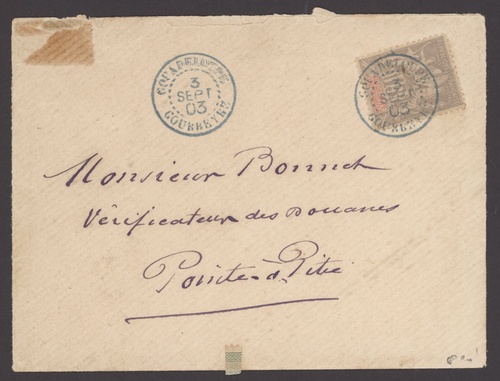 GUADELOUPE
3
SEPT
03
GOURBEYRE
GUADELOUPE
3
SEPT
03
GOURBEYRE
Monsieur Bonnet
Vérificateur des Douanes
Pointe-à-Pitre